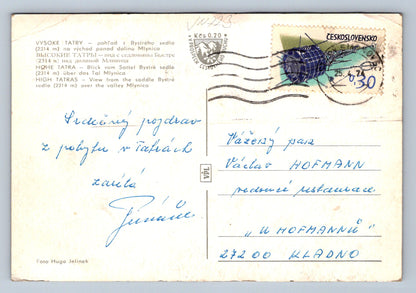 VYSOKÉ TATRY — pohľad z Bystrého sedla
(2314 m) na východ ponad dolinu Mlynica
ВЫСОКИЕ ТАТРЫ — вид с седловины Быстру
(2314 м) над долиной Млиница
HOHE TATRA — Blick vom Sattel Bystré sedlo
(2314 m) über das Tal Mlynica
HIGH TATRAS — View from the saddle Bystré
sedlo (2314 m) over the valley Mlynica
Kčs 0,20
ČESKOSLOVENSKO
30
Srdečný pozdrav
z pobytu v Tatrách
zasílá
Vážený pan
Václav HOFMANN
vedoucí restaurace
"U HOFMANNŮ"
27200 KLADNO
Foto Hugo Jelínek